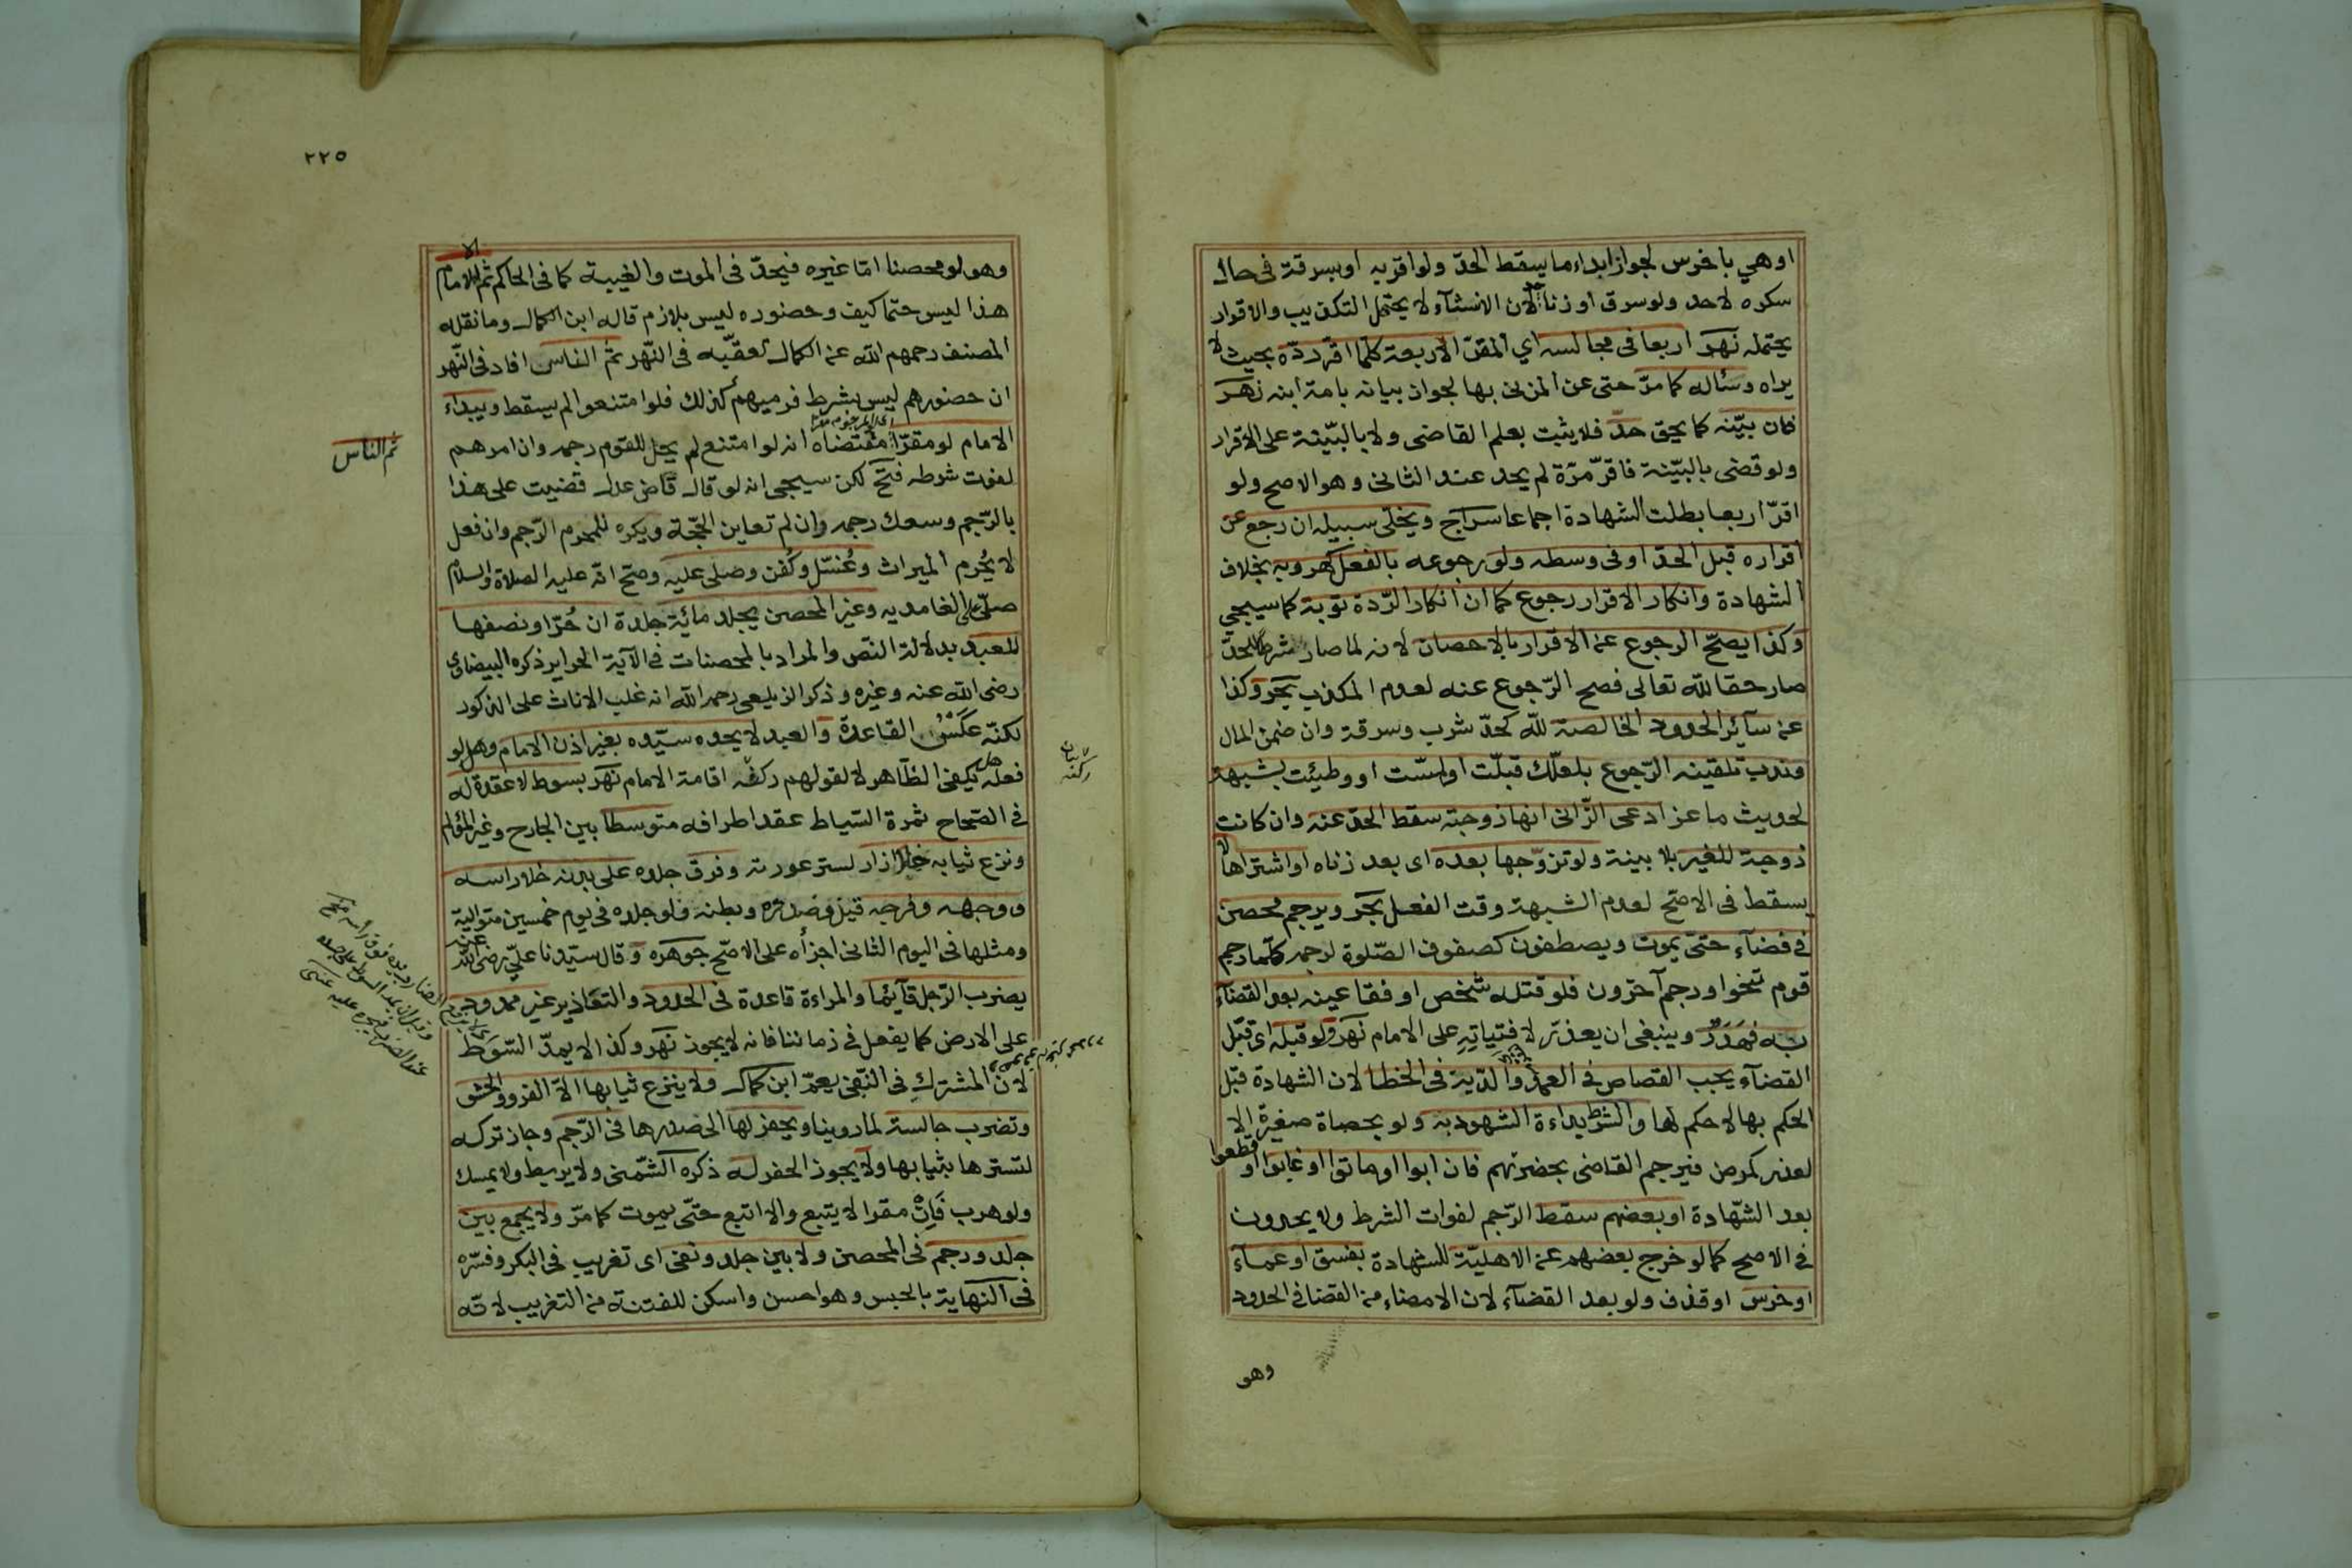 او هي باخرس لجواز ابداء ما يسقط الحدّ ولو اقر به او بسرقة فى حال
سكره لاحد ولو سرق او زنا حد لان الانشآء لا يحتمل التكذيب والاقرار
يحتمله نهر اربعا فى مجالسه اي المقرّ الاربعة كلما اقر ردّه بحيث لا
يراه وسئاله كما مرّ حتى عن المزنى بها لجواز بيانه بامة ابنه نهر
فان بيّنه كما يحق حدّ فلا يثبت بعلم القاضى ولا بالبيّنة على الاقرار
ولو قضى بالبيّنة فاقرّ مرّة لم يحد عند الثانى وهو الاصح ولو
اقرّ اربعا بطلت الشهادة اجماعا سراج ويخلّى سبيله ان رجع عن
اقراره قبل الحدّ او فى وسطه ولو رجوعه بالفعل كهروبه بخلاف
الشهادة وانكار الاقرار رجوع كما ان انكار الرّدة توبة كما سيجي
وكذا يصحّ الرجوع عن الاقرار بالاحصان لانه لما صار شرطا للحدّ
صار حقا لله تعالى فصح الرّجوع عنه لعدم المكذب بحر وكذا
عن سآئر الحدود الخالصة للّه كحدّ شرب وسرقة وان ضمن المال
وندب تلقينه الرّجوع بلعلّك قبلّت او لمسّت او وطيئت بشبهة
لحديث ماعز ادعى الزّانى انها زوجته سقط الحدّ عنه وان كانت
زوجة للغير بلا بينة ولو تزوّجها بعده اى بعد زناه او اشتراها لا
يسقط فى الاصحّ لعدم الشبهة وقت الفعل بحر ويرجم محصن
فى فضآء حتىّ يموت ويصطفون كصفوف الصّلوة لرجمه كلّما رجم
قوم تنحوا ورجم آخرون فلو قتله شخص او فقا عينه بعد القضآء
به فهدر وينبغى ان يعذّر لافتياته على الامام نهر ولو قبله اى قبل
القضآء يجب القصاص فى العمد والدّية فى الخطا لان الشهادة قبل
الحكم بها لا حكم لها والشرط بداءة الشهود به ولو بحصاة صغيرة الا
لعذر كمرض فيرجم القاضى بحضرتهم فان ابوا او ماتوا او غابوا او قطعوا
بعد الشّهادة او بعضهم سقط الرّجم لفوات الشرط ولا يحدون
فى الاصح كما لو خرج بعضهم عن الاهليّة للشهادة بفسق او عمآء
او خرس او قذف ولو بعد القضآء لان الامضاء من القضا فى الحدود
وهو
٢٢٥
وهو لو محصنا امّا غيره فيحدّ فى الموت والغيبة كما فى الحاكم ثم الامام
هذا ليس حتما كيف وحضوره ليس بلازم قاله ابن الكمال وما نقله
المصنف رحمهم الله عن الكمال تعقّبه فى النّهر ثم الناس افاد فى النّهر
ان حضورهم ليس بشرط فرميهم كذلك فلو امتنعوا لم يسقط ويبداء
الامام لو مقرّا مقتضاه انه لو امتنع لم يحل للقوم رجمه وان امرهم
لفوت شرطه فتح لكن سيجى انه لو قال قاض عدل قضيت على هذا
بالرّجم وسعك رجمه وان لم تعاين الحجّة ويكره للمحرم الرّجم وان فعل
لا يُحرم الميراث وغُسّل وكُفن وصلى عليه وصحّ انّه عليه الصلاة والسلام
صلّى على الغامديه وغير المحصن يجلد مائية جلدة ان حُرّا ونصفها
للعبد بدلالة النّص والمراد بالمحصنات فى الآية الحرايز ذكره البيضاوى
رضى الله عنه وغيره وذكر الزيلعى رحمه الله انه غلب الاناث على الذكور
لكنّه عَكَسُ القاعدة والعبد لا يحده سيّده بغير اذن الامام وهل لو
فعله هل يكفى الظّاهر لا لقولهم ركنه اقامة الامام نهر بسوط لا عقدة له
فى الصّحاح ثمرة السّياط عقد اطرافه متوسطا بين الجارح وغير المؤلم
ونزع ثيابه خلا ازار لستر عورته وفرق جلده على بدنه خلا راسه
ووجهه وفرجه قيل وصدره وبطنه فلو جلده فى يوم خمسين متوالية
ومثلها فى اليوم الثانى اجزأه على الاصّح جوهره وقال سيّدنا علىّ رضى الله عنه
يضرب الرّجل قآئما والمراءة قاعدة فى الحدود والتعاذير غير ممدود
على الارض كما يفعل فى زماننا فانه لا يجوز نهر وكذا لا يمدّ السّوط
لان المشترك فى النّفى يعمّ ابن كمال ولا ينزع ثيابها الاّ الفرو والحشو
وتضرب جالسة لما روينا ويحفر لها الى صدرها فى الرّجم وجاز تركه
لتسترها بثيابها ولا يجوز الحفر له ذكره الشّمنى ولا يربط ولا يمسك
ولو هرب فَاِنْ مقرا لا يتبع والا اتبع حتّى يموت كما مرّ ولا يجمع بين
جلد ورجم فى المحصن ولا بين جلد ونفى اى تغريب فى البكر وفسّره
فى النهاية بالحبس وهو احسن واسكن للفتنة من التغريب لانّه
ثم الناس
ركنه